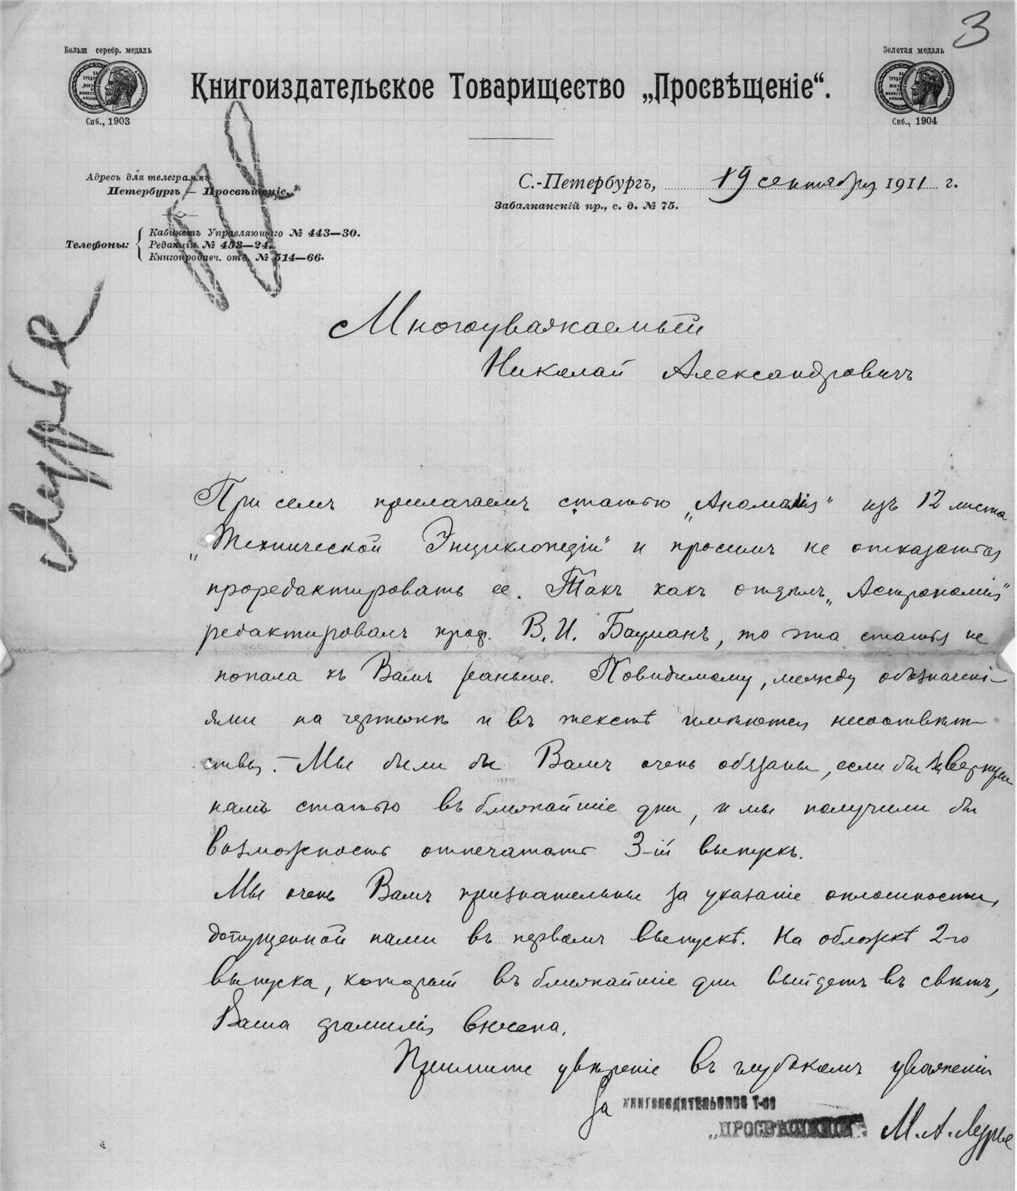 3
Больш серебр. медаль
Золотая медаль
Книгоиздательское Товарищество „Просвѣщеніе“.
Спб., 1903
Спб., 1904
Адресъ для телеграмъ
Петербургъ — Просвѣщеніе.
С.-Петербургъ, 19 сентября 1911 г.
Забалканскій пр., с. д. № 75.
Телефоны:
Кабинетъ Управляющаго № 443—30.
Редакціи № 453—24.
Книгопродавч. отд. № 514—66.
Лурье
Многоуважаемый
Николай Александровичъ
При семъ прилагаемъ статью „Аномалія“ изъ 12 листа
„Технической Энциклопедіи“ и просимъ не отказаться
проредактировать ее. Такъ какъ отдѣлъ „Астрономія“
редактировалъ проф. В. И. Бауманъ, то эта статья не
попала къ Вамъ раньше. Повидимому, между обозначені-
ями на чертежѣ и въ текстѣ имѣются несоотвѣт-
ствія. — Мы были бы Вамъ очень обязаны, если бы Вы вернули
намъ статью въ ближайшіе дни, и мы получили бы
возможность отпечатать 3-ій выпускъ.
Мы очень Вамъ признательны за указаніе оплошности,
допущенной нами въ первомъ выпускѣ. На обложкѣ 2-го
выпуска, который въ ближайшіе дни выйдетъ въ свѣтъ,
Ваша фамилія внесена.
Примите увѣреніе въ глубокомъ уваженіи
За КНИГОИЗДАТЕЛЬСКОЕ Т-ВО
„ПРОСВѢЩЕНІЕ“ М. А. Лурье